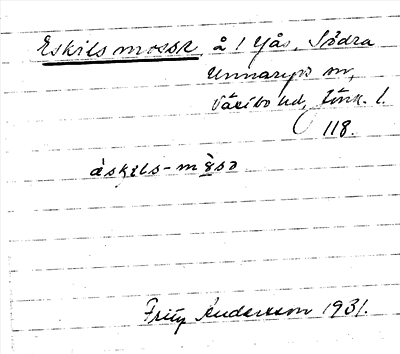 Eskils mosse å 1 Yås, Södra
Unnaryds sn,
Västbo hd, Jönk. l.
118.
àskəls-mòsə
Fritz Andersson 1931.